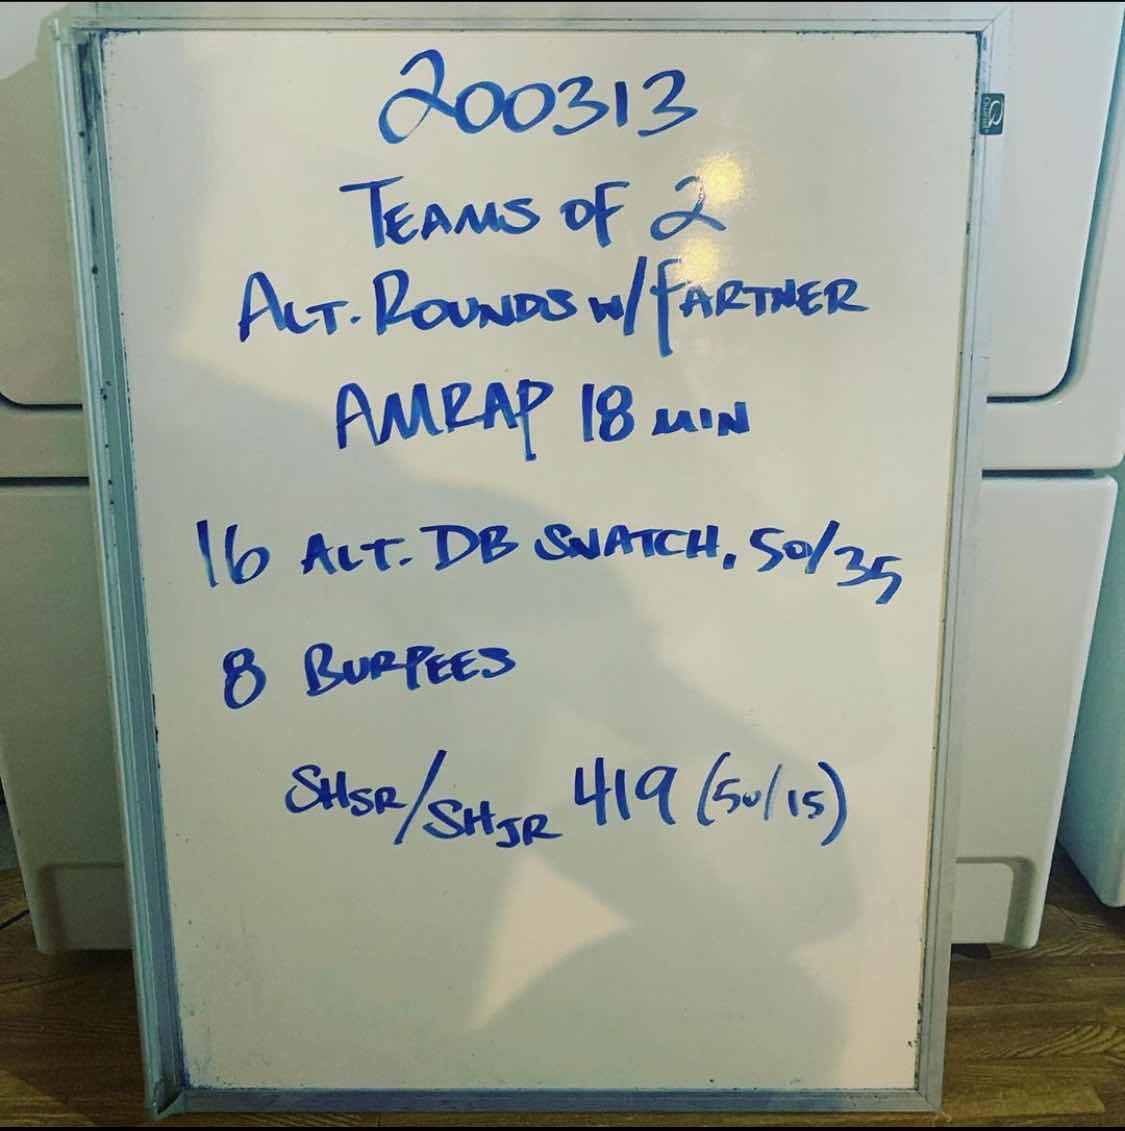 200313
TEAMS OF 2
ALT. ROUNDS W/PARTNER
AMRAP 18 MIN
16 ALT. DB SNATCH, 50/35
8 BURPEES
SHSR/SHJR 419 (50/15)